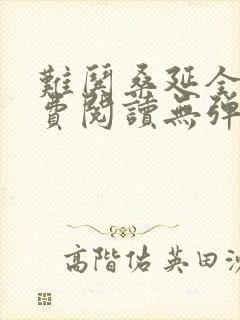 難鬨桑延全
費閱讀無彈
高階佑英田